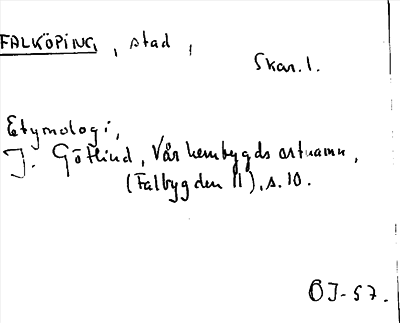 FALKÖPING, stad,
Skar. l.
Etymologi,
J. Götlind, Vår hembygds ortnamn,
(Falbygden II), s. 10.
ÖJ-57.